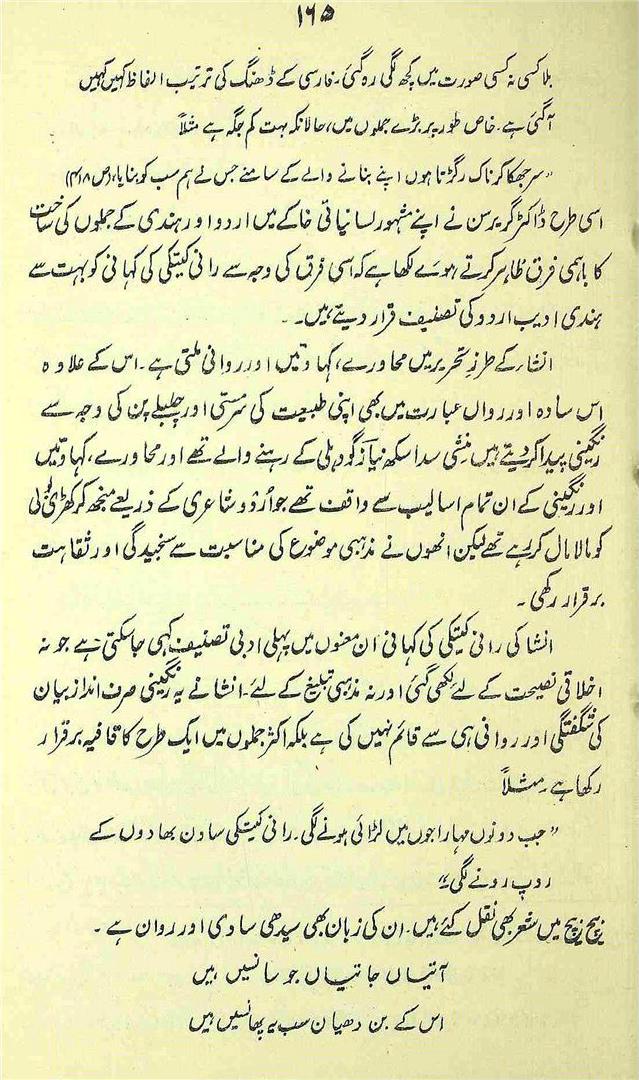 ۱۶۵
بلا کسی نہ کسی صورت میں کچھ لگی رہ گئی۔ فارسی کے ڈھنگ کی ترتیب الفاظ کہیں کہیں
آگئی ہے۔ خاص طور پر بڑے جملوں میں، حالانکہ بہت کم جگہ ہے مثلاً
"سر جھکا کر ناک رگڑتا ہوں اپنے بنانے والے کے سامنے جس نے ہم سب کو بنایا، (ص ۴۱۸)
اسی طرح ڈاکٹر گریرسن نے اپنے مشہور لسانیاتی خاکے میں اردو اور ہندی کے جملوں کی ساخت
کا باہمی فرق ظاہر کرتے ہوئے لکھا ہے کہ اسی فرق کی وجہ سے رانی کیتکی کی کہانی کو بہت سے
ہندی ادیب اردو کی تصنیف قرار دیتے ہیں۔
انشاء کے طرز تحریر میں محاورے، کہاوتیں اور روانی ملتی ہے۔ اس کے علاوہ
اس سادہ اور رواں عبارت میں بھی اپنی طبیعت کی سرمستی اور چلبلے پن کی وجہ سے
رنگینی پیدا کر دیتے ہیں منشی سدا سکھ نیاز گو دہلی کے رہنے والے تھے اور محاورے، کہاوتیں
اور رنگینی کے ان تمام اسالیب سے واقف تھے جو اُردو شاعری کے ذریعے منجھ کر کھڑی بولی
کو مالا مال کر رہے تھے لیکن انھوں نے مذہبی موضوع کی مناسبت سے سنجیدگی اور ثقاہت
برقرار رکھی۔
انشا کی رانی کیتکی کی کہانی ان معنوں میں پہلی ادبی تصنیف کہی جا سکتی ہے جو نہ
اخلاقی نصیحت کے لئے لکھی گئی اور نہ مذہبی تبلیغ کے لئے۔ انشا نے یہ رنگینی صرف انداز بیان
کی شگفتگی اور روانی ہی سے قائم نہیں کی ہے بلکہ اکثر جملوں میں ایک طرح کا قافیہ برقرار
رکھا ہے۔ مثلاً
"جب دونوں مہاراجوں میں لڑائی ہونے لگی۔ رانی کیتکی ساون بھادوں کے
روپ رونے لگی۔"
بیچ بیچ میں شعر بھی نقل کئے ہیں۔ ان کی زبان بھی سیدھی سادی اور رواں ہے۔
آتیاں جاتیاں جو سانسیں ہیں
اس کے بن دھیان سب یہ پھانسیں ہیں